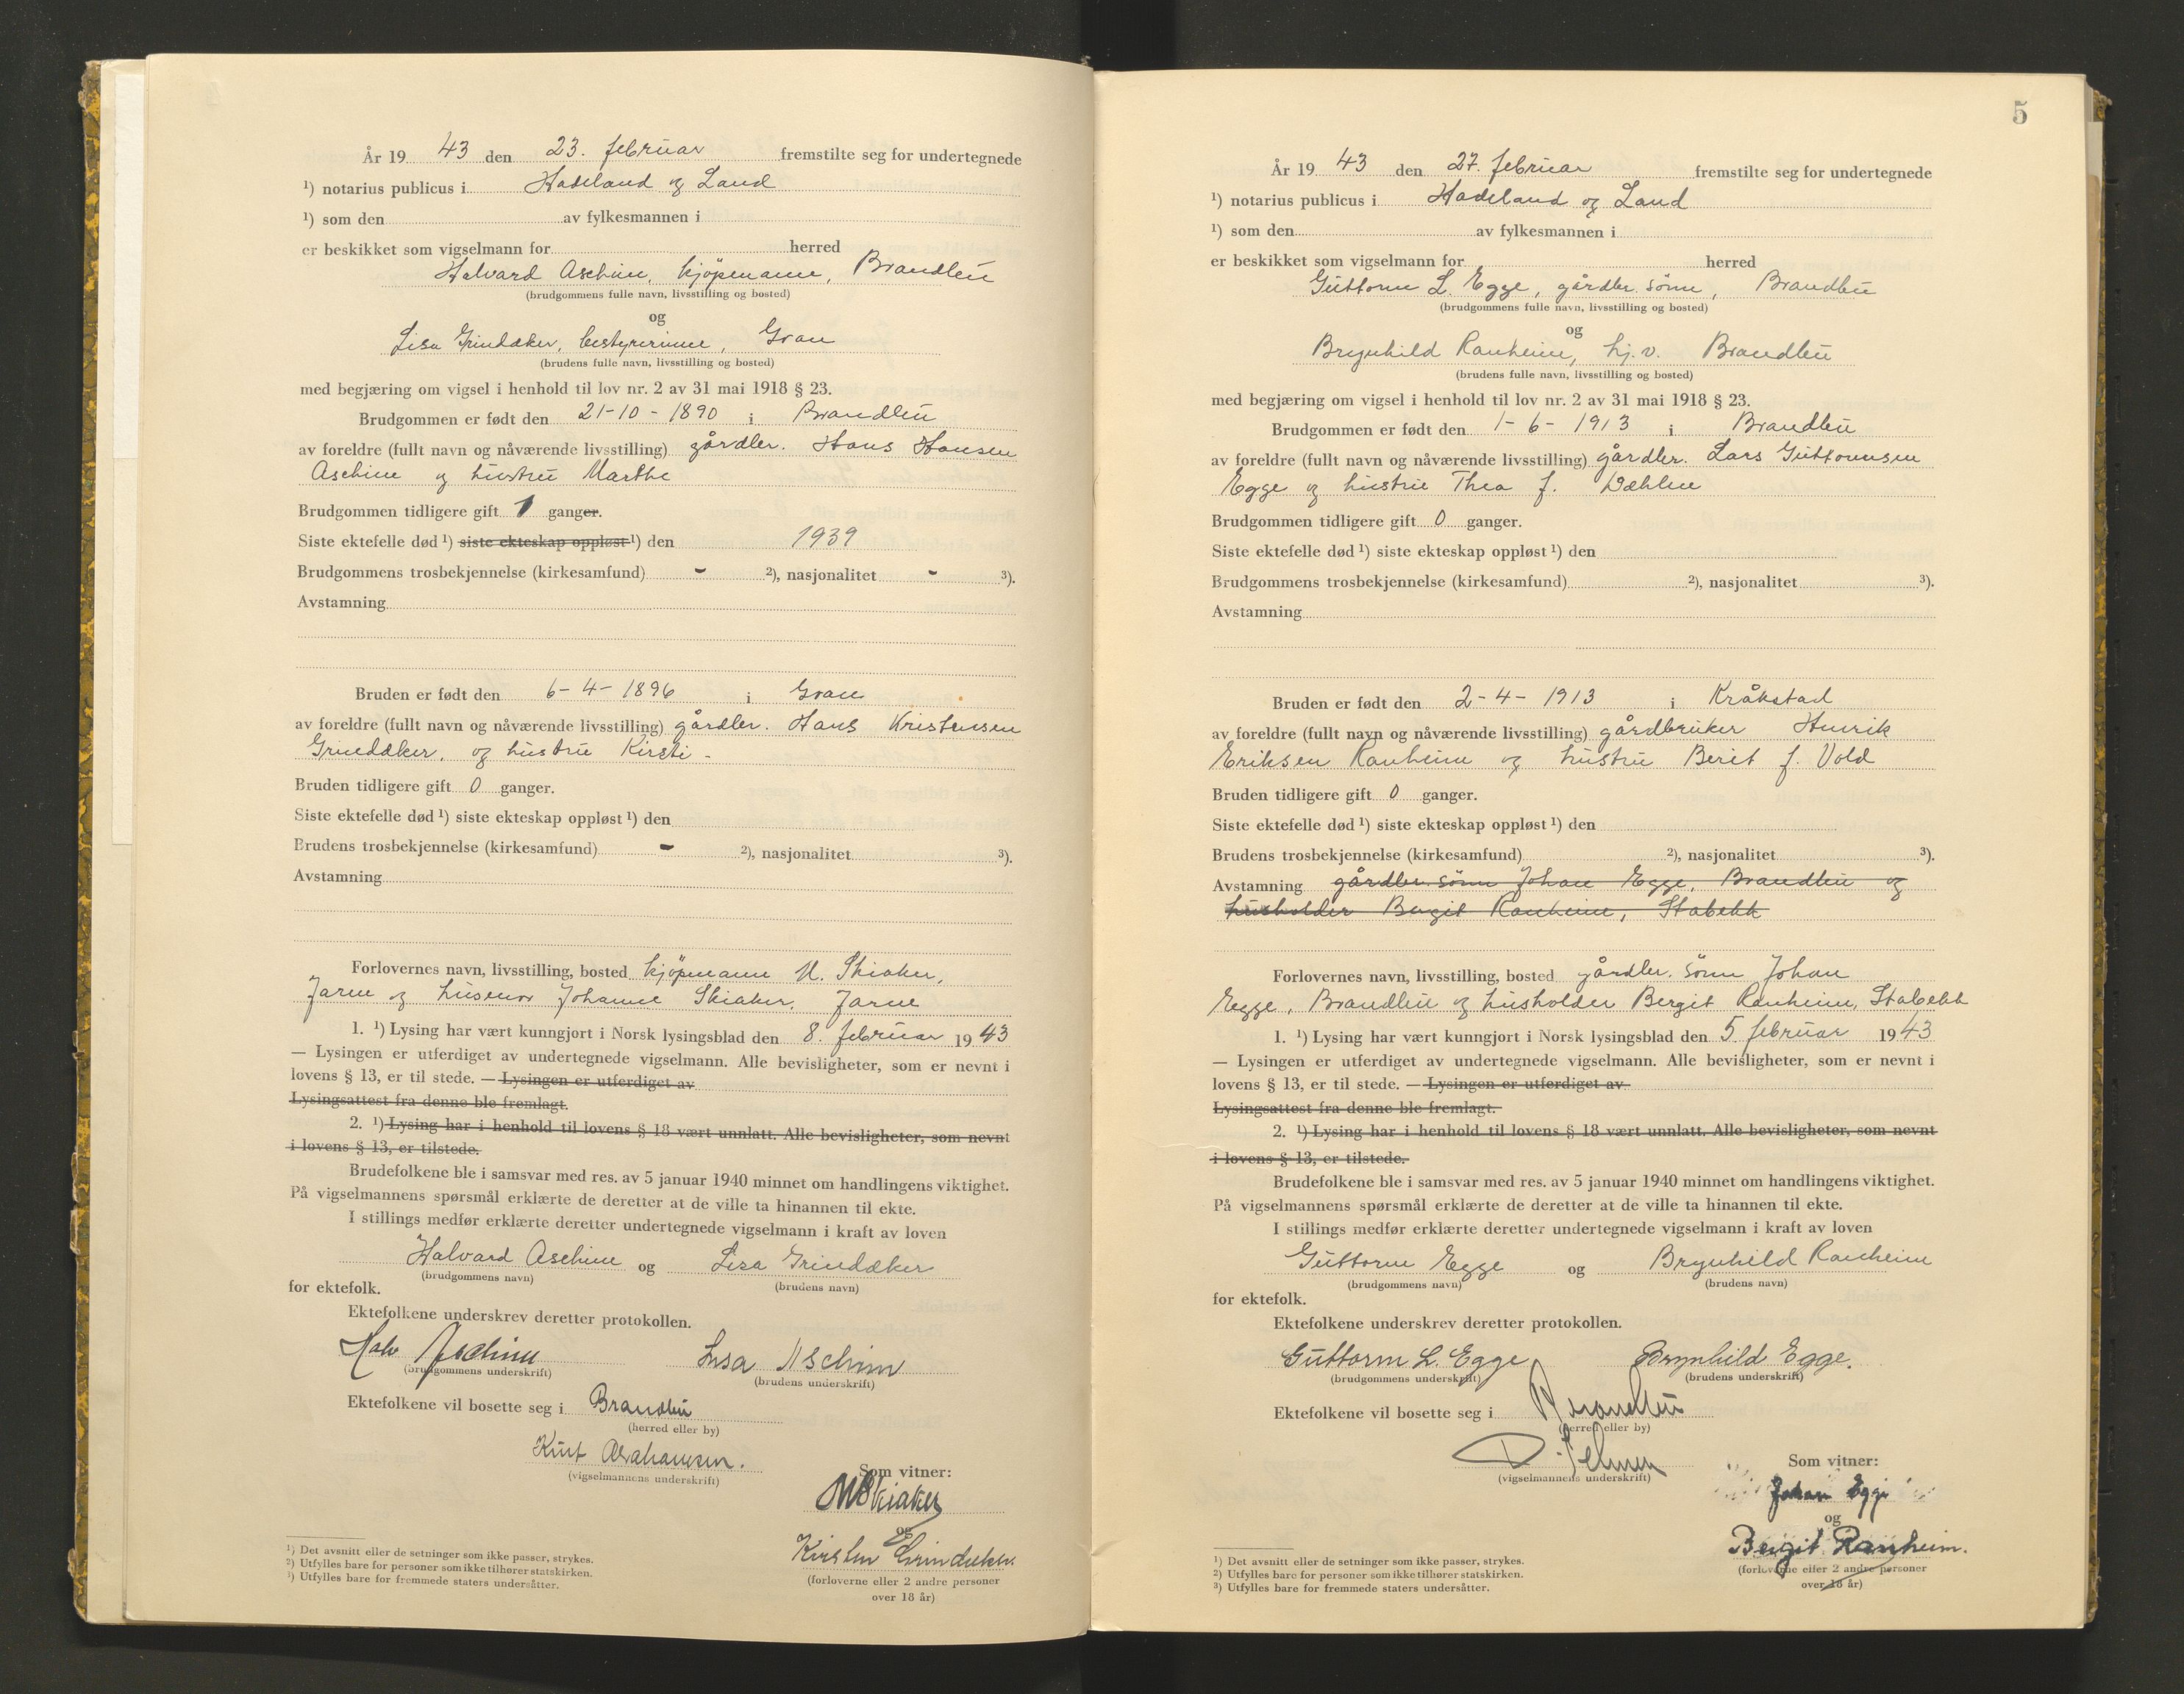 År 19 43 den 23. februar fremstilte seg for undertegnede
¹) notarius publicus i Hadeland og Land
¹) som den av fylkesmannen i
er beskikket som vigselmann for herred
Halvard Aschim, kjöpmann, Brandbu
(brudgommens fulle navn, livsstilling og bosted)
og
Lisa Grindaker, bestyrerinne, Gran
(brudens fulle navn, livsstilling og bosted)
med begjæring om vigsel i henhold til lov nr. 2 av 31 mai 1918 § 23.
Brudgommen er født den 21-10-1890 i Brandbu
av foreldre (fullt navn og nåværende livsstilling) gårdbr. Hans Hansen
Aschim og hustru Marthe
Brudgommen tidligere gift 1 ganger.
Siste ektefelle død ¹) siste ekteskap oppløst ¹) den 1939
Brudgommens trosbekjennelse (kirkesamfund) - ²), nasjonalitet - ³).
Avstamning
Bruden er født den 6-4-1896 i Gran
av foreldre (fullt navn og nåværende livsstilling) gårdbr. Hans Kristensen
Grindaker, og hustru Kirsti -
Bruden tidligere gift 0 ganger.
Siste ektefelle død ¹) siste ekteskap oppløst ¹) den
Brudens trosbekjennelse (kirkesamfund) - ²), nasjonalitet ³).
Avstamning
Forlovernes navn, livsstilling, bosted kjöpmann M. Skiaker,
Jaren og husmor Johanne Skiaker, Jaren
1. ¹) Lysing har vært kunngjort i Norsk lysingsblad den 8. februar 19 43
— Lysingen er utferdiget av undertegnede vigselmann. Alle bevisligheter, som er nevnt i
lovens § 13, er til stede. — Lysingen er utferdiget av
Lysingsattest fra denne ble fremlagt.
2. ¹) Lysing har i henhold til lovens § 18 vært unnlatt. Alle bevisligheter, som nevnt
i lovens § 13, er tilstede.
Brudefolkene ble i samsvar med res. av 5 januar 1940 minnet om handlingens viktighet.
På vigselmannens spørsmål erklærte de deretter at de ville ta hinannen til ekte.
I stillings medfør erklærte deretter undertegnede vigselmann i kraft av loven
Halvard Aschim og Lisa Grindaker
(brudgommens navn) (brudens navn)
for ektefolk.
Ektefolkene underskrev deretter protokollen.
Halv Aschim Lisa Aschim
(brudgommens underskrift) (brudens underskrift)
Ektefolkene vil bosette seg i Brandbu
(herred eller by)
Kurt Abrahamsen.
(vigselmannens underskrift)
Som vitner:
M Skiaker
og
Kirsten Grindaker
(forloverne eller 2 andre personer
over 18 år)
¹) Det avsnitt eller de setninger som ikke passer, strykes.
²) Utfylles bare for personer som ikke tilhører statskirken.
³) Utfylles bare for fremmede staters undersåtter.
5
År 19 43 den 27. februar fremstilte seg for undertegnede
¹) notarius publicus i Hadeland og Land
¹) som den av fylkesmannen i
er beskikket som vigselmann for herred
Guttorm L. Egge, gårdbr. sönn, Brandbu
(brudgommens fulle navn, livsstilling og bosted)
og
Brynhild Ranheim, hj.v. Brandbu
(brudens fulle navn, livsstilling og bosted)
med begjæring om vigsel i henhold til lov nr. 2 av 31 mai 1918 § 23.
Brudgommen er født den 1-6-1913 i Brandbu
av foreldre (fullt navn og nåværende livsstilling) gårdbr. Lars Guttormsen
Egge og hustru Thea f. Dæhlen
Brudgommen tidligere gift 0 ganger.
Siste ektefelle død ¹) siste ekteskap oppløst ¹) den
Brudgommens trosbekjennelse (kirkesamfund) ²), nasjonalitet ³).
Avstamning
Bruden er født den 2-4-1913 i Kråkstad
av foreldre (fullt navn og nåværende livsstilling) gårdbruker Henrik
Eriksen Ranheim og hustru Berit f. Vold
Bruden tidligere gift 0 ganger.
Siste ektefelle død ¹) siste ekteskap oppløst ¹) den
Brudens trosbekjennelse (kirkesamfund) ²), nasjonalitet ³).
Avstamning gårdbr. sönn Johan Egge, Brandbu og
husholder Bergit Ranheim, Stabekk
Forlovernes navn, livsstilling, bosted gårdbr. sönn Johan
Egge, Brandbu og husholder Bergit Ranheim, Stabekk
1. ¹) Lysing har vært kunngjort i Norsk lysingsblad den 5 februar 19 43
— Lysingen er utferdiget av undertegnede vigselmann. Alle bevisligheter, som er nevnt i
lovens § 13, er til stede. — Lysingen er utferdiget av
Lysingsattest fra denne ble fremlagt.
2. ¹) Lysing har i henhold til lovens § 18 vært unnlatt. Alle bevisligheter, som nevnt
i lovens § 13, er tilstede.
Brudefolkene ble i samsvar med res. av 5 januar 1940 minnet om handlingens viktighet.
På vigselmannens spørsmål erklærte de deretter at de ville ta hinannen til ekte.
I stillings medfør erklærte deretter undertegnede vigselmann i kraft av loven
Guttorm Egge og Brynhild Ranheim
(brudgommens navn) (brudens navn)
for ektefolk.
Ektefolkene underskrev deretter protokollen.
Guttorm L. Egge Brynhild Egge.
(brudgommens underskrift) (brudens underskrift)
Ektefolkene vil bosette seg i Brandbu
(herred eller by)
(vigselmannens underskrift)
Som vitner:
Johan Egge
og
Bergit Ranheim.
(forloverne eller 2 andre personer
over 18 år)
¹) Det avsnitt eller de setninger som ikke passer, strykes.
²) Utfylles bare for personer som ikke tilhører statskirken.
³) Utfylles bare for fremmede staters undersåtter.